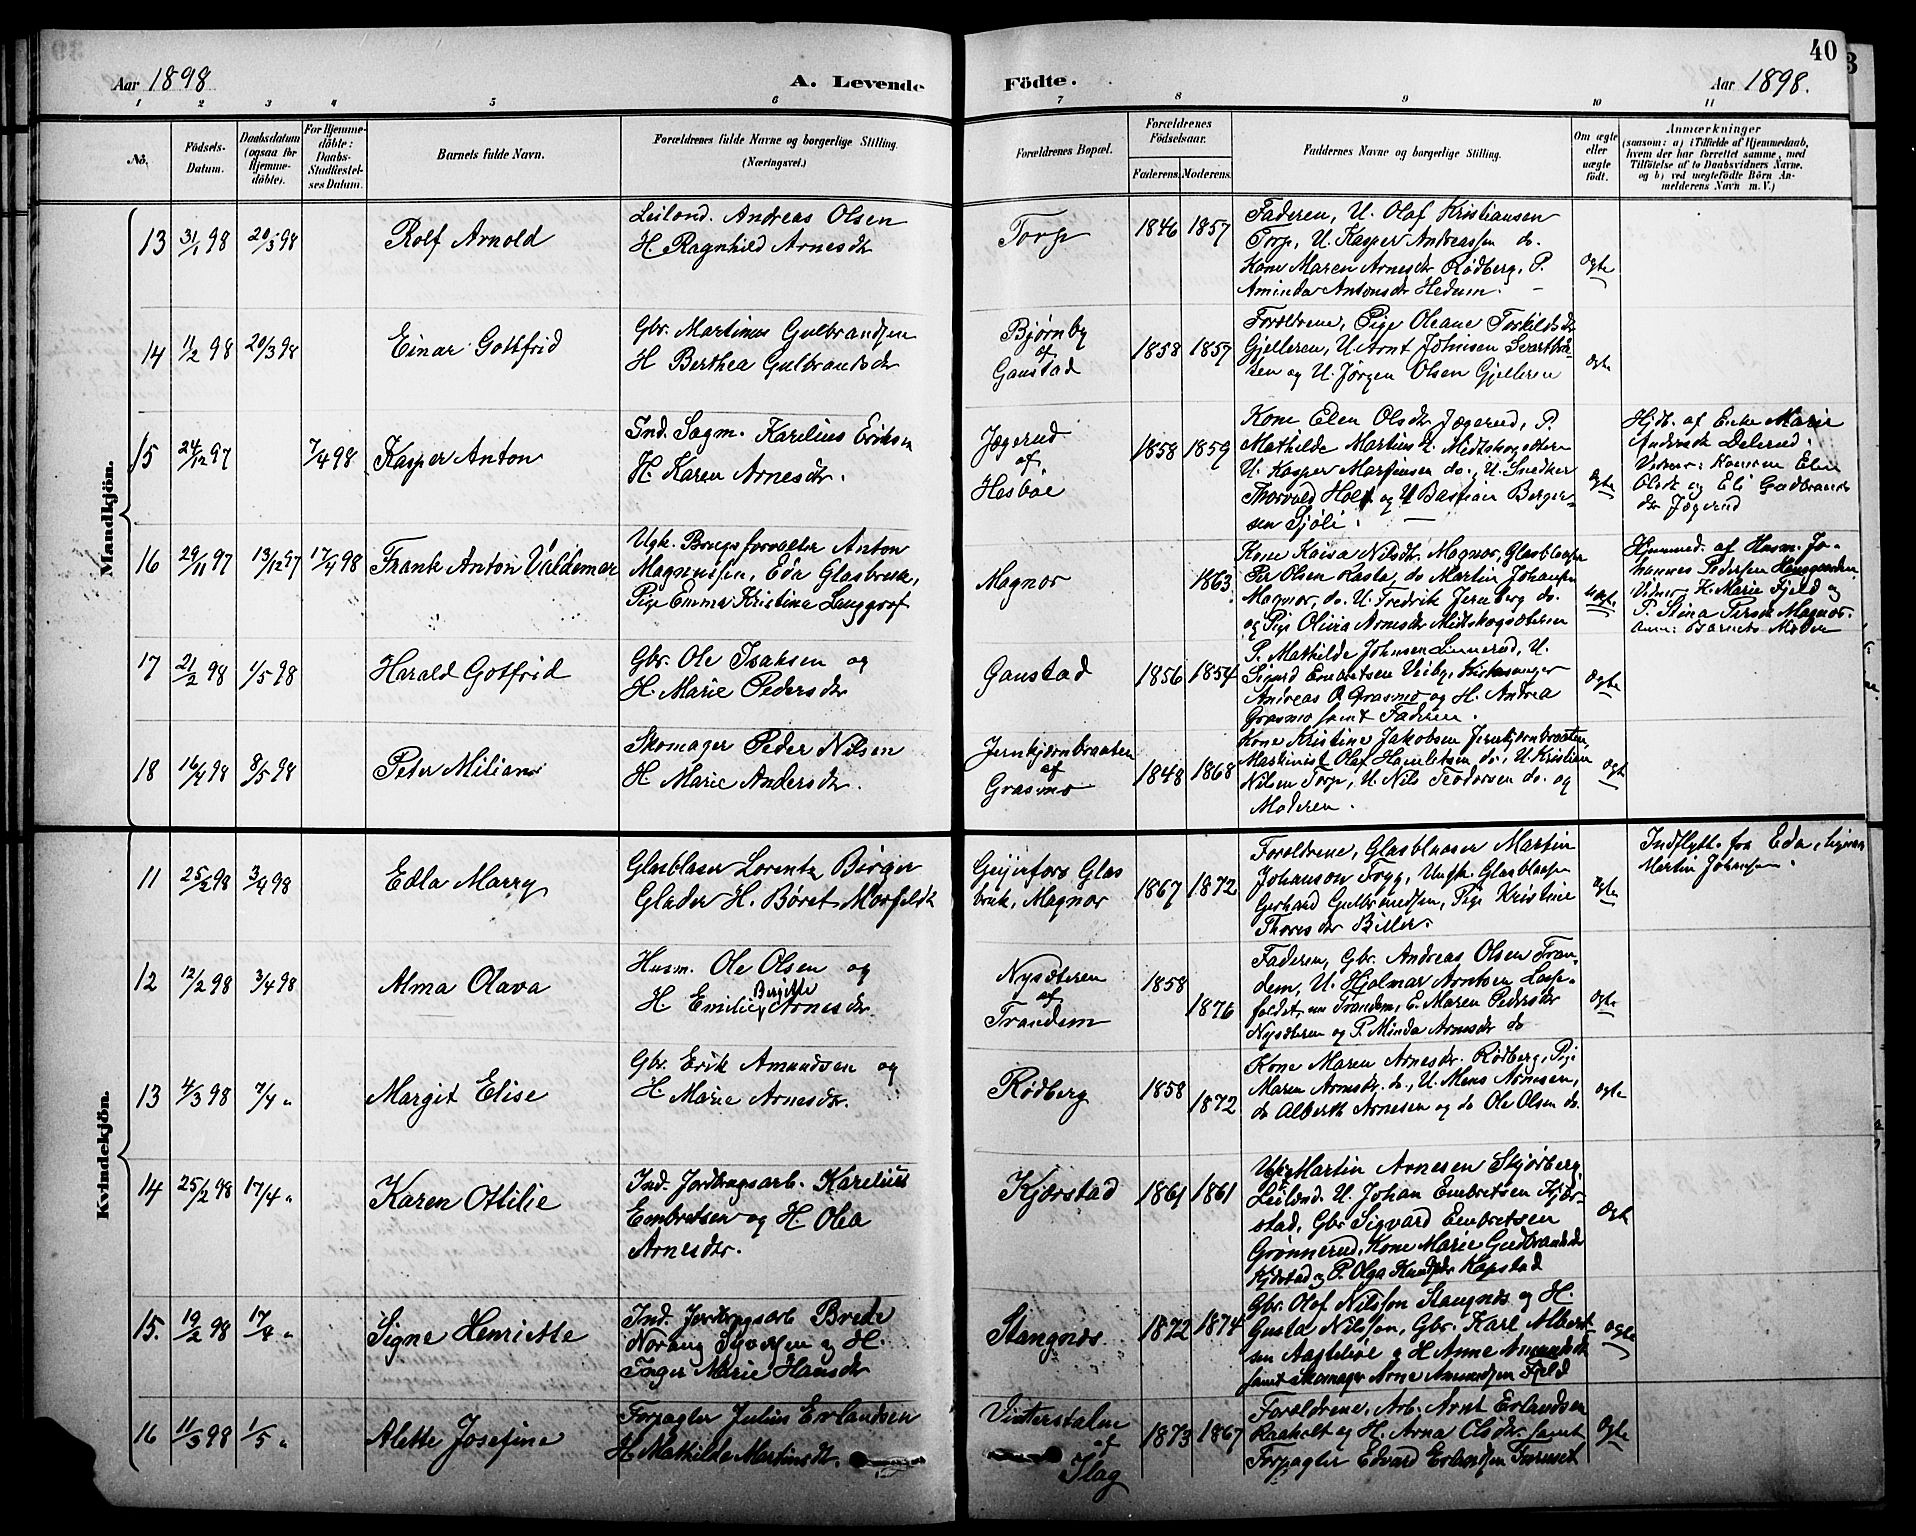 40
Aar 1898
A. Levende Födte.
Aar 1898.
1 2 3 4 5 6 7 8 9 10 11
No.
Födsels-Datum.
Daabsdatum (ogsaa for Hjemme-döbte).
For Hjemme-döbte: Daabs-Stadfæstel-ses Datum.
Barnets fulde Navn.
Forældrenes fulde Navne og borgerlige Stilling.
(Næringsvei.)
Forældrenes Bopæl.
Forældrenes Födselsaar.
Faderens. Moderens.
Faddernes Navne og borgerlige Stilling.
Om ægte eller uægte födt.
Anmærkninger
(saasom: a) i Tilfælde af Hjemmedaab,
hvem der har forrettet samme, med
Tilföielse af to Daabsvidners Navne,
og b) ved uægtefödte Börn An-
melderens Navn m. V.)
Mandkjön.
13 31/1 98 20/3 98 Rolf Arnold
Leilænd. Andreas Olsen
H. Ragnhild Arnesdtr
Torp
1846 1857
Faderen, U. Olaf Kristiansen
Torp, U. Kasper Andreassen do.
Kone Maren Arnesdtr Rødberg, P.
Aminda Antonsdtr Hedum.
ægte
14 11/2 98 20/3 98 Einar Gottfrid
Gbr. Martinus Gulbrandsen
H. Berthea Gulbrandsdtr
Bjørnby
af
Gaustad
1858 1859
Forældrene, Pige Oleane Torkildsdtr
Gjelleren, U. Arnt Johnsen Svartbrå-
ten og U. Jørgen Olsen Gjelleren
ægte
15 24/12 97 7/4 98 Kasper Anton
Ind. Sagm. Karelius Eriksen
H. Karen Arnesdtr.
Jægerud
af
Hesboe
1858 1859
Kone Elen Olsdtr Jægerud, P.
Mathilde Martinsdtr Midtskogsæteren
U. Kasper Martinsen do., U. Snedker
Thorvald Holt og U Bastian Berger-
sen Sjøli.
ægte
Hjdb. af Enke Marie
Andersdtr Delerud.
Vidner: Konerne Elen
Olsdtr og Eli Gudbrands
dtr Jægerud
16 29/11 97 13/12 97 17/4 98 Frank Anton Valdemar
Ugk. Brugsforvalter Anton
Magnussen, Eda Glasbruk,
Pige Emma Kristine Langgrof
Magnor
1863
Kone Kaisa Nilsdtr. Magnor, Glasblaaser
Per Olsen Rasta, do Martin Johansen
Magnor, do. U. Fredrik Jernberg do.
og Pige Olivia Arnesdtr Midtskogsæteren
uægte
Hjemmed. af Husm. Jo-
hannes Pedersen Haugaarden
Vidner: K. Marie Fjeld og
P. Stina Persdtr Magnor.
Anm: Barnets Moder
17 21/2 98 1/5 98 Harald Gotfrid
Gbr. Ole Isaksen og
H. Marie Pedersdtr
Gaustad
1856 1854
P. Mathilde Johnsen Linnerud, U.
Sigurd Embretsen Viiby, Kirkesanger
Andreas P. Grasmo og H. Andrea
Grasmo samt Faderen.
ægte
18 16/4 98 8/5 98 Peter Milian
Skomager Peder Nilsen
H. Marie Andersdtr.
Jernkjornbraaten
af
Grasmo
1848 1868
Kone Kristine Jakobsen Jernkjornbraaten,
Maskinist Olaf Hanletsen do., U. Kristian
Nilsen Torp, U. Nils Teodorsen do. og
Moderen.
ægte
Kvindekjön.
11 25/2 98 3/4 98 Edla Marry
Glasblaser Lorentz Börger
Glader H. Böret Morfeldt
Geijerfors Glas
bruk, Magnor
1867 1872
Forældrene, Glasblaaser Martin
Johanson Frygg, Ungk. Glasblaaser
Gerhard Gulbrandsen, Pige Kristine
Thoresdtr Biller.
ægte
Indflytt. fra Eda,
Martin Johansen.
12 12/2 98 3/4 98 Alma Olava
Husm. Ole Olsen og
H. Emilie Bergitte Arnesdtr
Nysæteren
af
Trandem
1858 1876
Faderen, Gbr. Andreas Olsen Tran-
dem, U. Hjalmar Arntsen Lasse-
foldet u. Trandem, E. Maren Pedersdtr
Nysæteren og P. Minda Arnesdtr do
ægte
13 4/3 98 7/4 " Margit Elise
Gbr. Erik Amundsen og
H Marie Arnesdtr.
Rödberg
1858 1872
Kone Maren Arnesdtr. Rödberg, Pige
Maren Arnesdtr. do., U. Mens Arnesen,
do Alberth Arnesen og do Ole Olsen do.
ægte
14 25/2 98 17/4 " Karen Ottilie
Ind. Jordbrugsarb. Karelius
Embretsen og H. Olea
Arnesdtr.
Kjærstad
1861 1861
Ugk. Martin Arnesen Skjørberg,
Leilænd. U. Johan Embretsen Kjær-
stad, Gbr Sigvard Embretsen
Grønnerud, Kone Marie Gudbrandsdtr
Kjærstad og P. Olga Knudsdtr Kapstad
ægte
15. 19/2 98 17/4 " Signe Henriette
Ind. Jordbrugsarb Brede
Norang Syversen og H.
Inger Marie Hansdtr
Stangnæs
1872 1874
Gbr. Olof Nilsson Stangnæs og H.
Gusta Nilssen, Gbr. Karl Albert-
sen Aagteliöe og H Anne Amundsdtr
samt skomager Arne Amundsen Fjeld
ægte
16 11/3 98 1/5 " Alette Josefine
Forpagter Julius Erlandsen
H Mathilde Martinsdtr.
Vinterstalen
af
Ilag
1873 1867
Forældrene, Arb. Arnt Erlandsen
Raaholt og H. Arna Olsdtr. samt
Forpagter Edvard Erlandsen Furuset
ægte